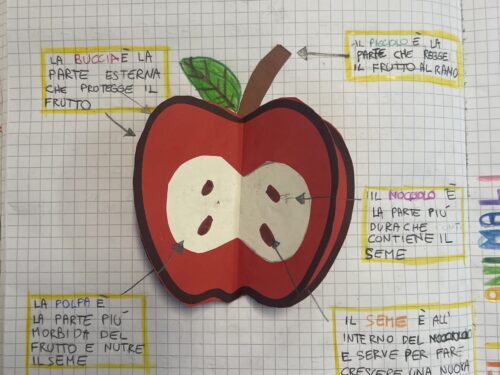 LA BUCCIA È LA
PARTE ESTERNA
CHE PROTEGGE IL
FRUTTO
IL PICCIOLO È LA
PARTE CHE REGGE
IL FRUTTO AL RAMO
IL NOCCIOLO È
LA PARTE PIÙ
DURA CHE
CONTIENE IL
SEME
LA POLPA È
LA PARTE PIÙ
MORBIDA DEL
FRUTTO E NUTRE
IL SEME
IL SEME È ALL'
INTERNO DEL NOCCIOLO
E SERVE PER FARE
CRESCERE UNA NUOVA
ANIMALI